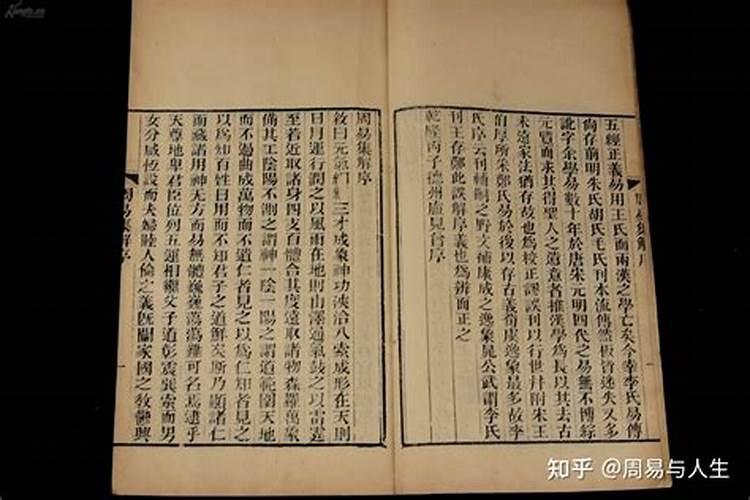 五經正義易用王氏而兩漢之學亡矣今幸李氏易傳
尚存前明朱氏胡氏毛氏刊本流傳然板皆迷失又多
訛字余學易數十年於唐宋元明四代之易無不博綜
元覽而求其得聖人之遺意者推漢學為長以其去古
未遠家法猶存故也為校正謬誤刊以行世并附朱王
伯厚所采鄭氏易於後以存古義荀虞逸象最多故李
氏序云刊輔嗣之野文補康成之逸象晁公武謂李氏
刊王存鄭此誤解序義也為辨而正之
乾隆丙子德州盧見曾序
周易集解序
周易集解序
敘曰元氣絪縕三才成象神功浹洽八索成形在天則
日月運行潤之以風雨在地則山澤通氣鼓之以雷霆
至若近取諸身四支百體合其度遠取諸物森羅萬象
備其工陰陽不測之謂神一陰一陽之謂道範圍天地
而不過曲成萬物而不遺仁者見之以為仁知者見之
以為知百姓日用而不知君子之道鮮矣斯乃顯諸仁
而藏諸用神无方而易無體巍巍蕩蕩難可名焉逮乎
天尊地卑君臣位列五運相繼父子道彰震巽索而男
女分咸恆設而夫婦睦人倫之義旣闡家國之敎鬱興
周易集解序
知乎 @周易与人生